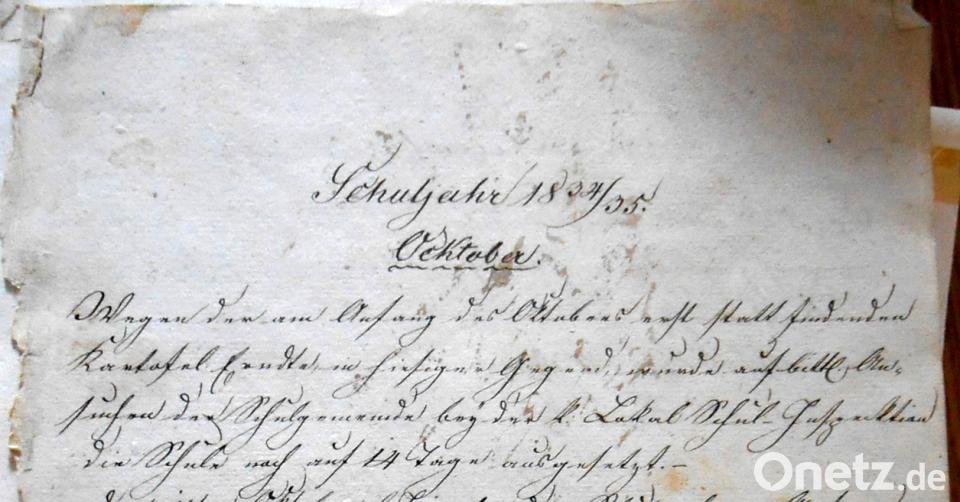 Schuljahr 1834/35.
Ocktober.
Wegen der am Anfang des Oktobers erst statt findenden
Kartofel Erndte, in hiesiger Gegend, wurde auf bittl. An-
suchen der Schulgemeinde bey der k. Lokal Schul-Inspektion
die Schule noch auf 14 Tage ausgesetzt.-
Onetz.de